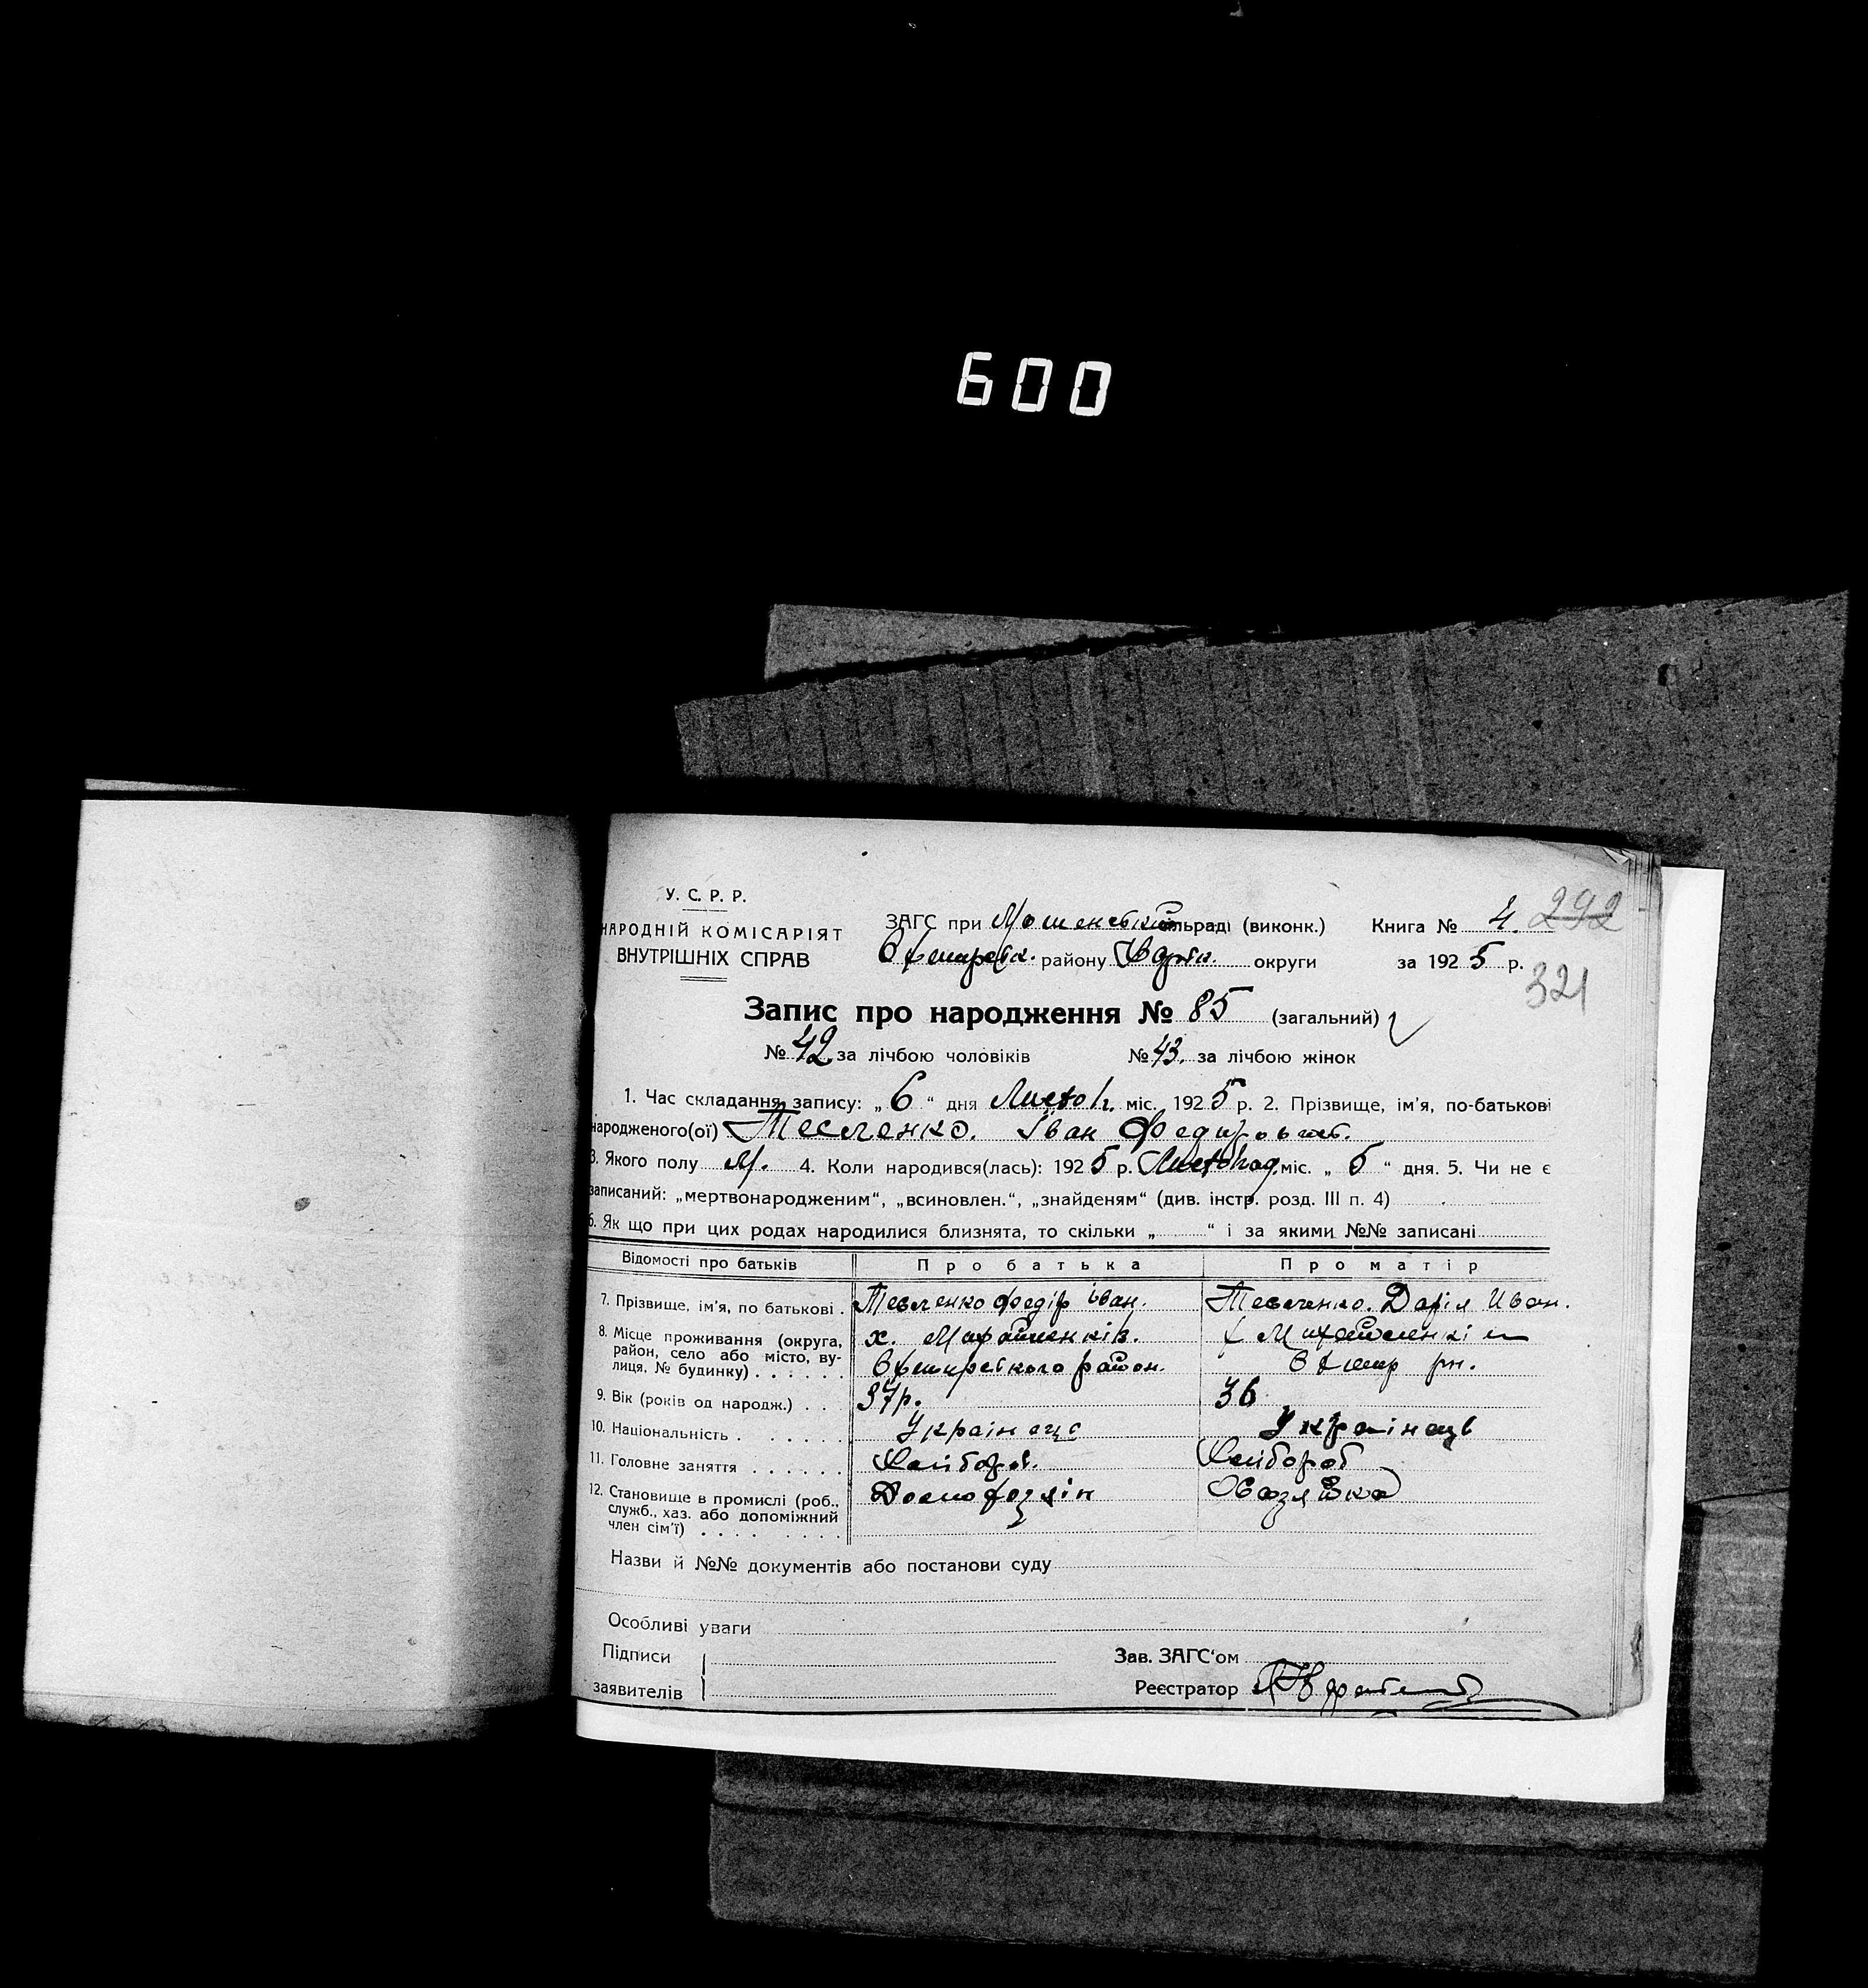 600
У. С. Р. Р.
НАРОДНІЙ КОМІСАРІЯТ
ВНУТРІШНІХ СПРАВ
ЗАГС при сільраді (виконк.)
району округи
Книга № 4. 292
за 1925 р.
321
Запис про народження № 85 (загальний)
№ 42 за лічбою чоловіків № 43. за лічбою жінок
1. Час складання запису: „ 6 “ дня міс. 1925 р. 2. Прізвище, ім'я, по-батькові
народженого(ої) Тесленко. Іван
3. Якого полу М. 4. Коли народився(лась): 1925 р. міс. „ 5 “ дня. 5. Чи не є
записаний: „мертвонародженим“, „всиновлен.“, „знайденям“ (див. інстр. розд. III п. 4)
6. Як що при цих родах народилися близнята, то скільки „ “ і за якими №№ записані
Відомості про батьків Про батька Про матір
7. Прізвище, ім'я, по батькові . Тесленко Федір Іван. Тесленко. Дарія Иван.
8. Місце проживання (округа, х.
район, село або місто, ву- район. рн.
лиця, № будинку) . . . . . .
9. Вік (років од народж.) . . 37р. 36
10. Національність . . . . . . Українець Українець
11. Головне заняття . . . . . . Хлібороб
12. Становище в промислі (роб.,
служб., хаз. або допоміжний
член сім'ї) . . . . . . . .
Назви й №№ документів або постанови суду
Особливі уваги
Підписи
заявителів
Зав. ЗАГС'ом
Реєстратор